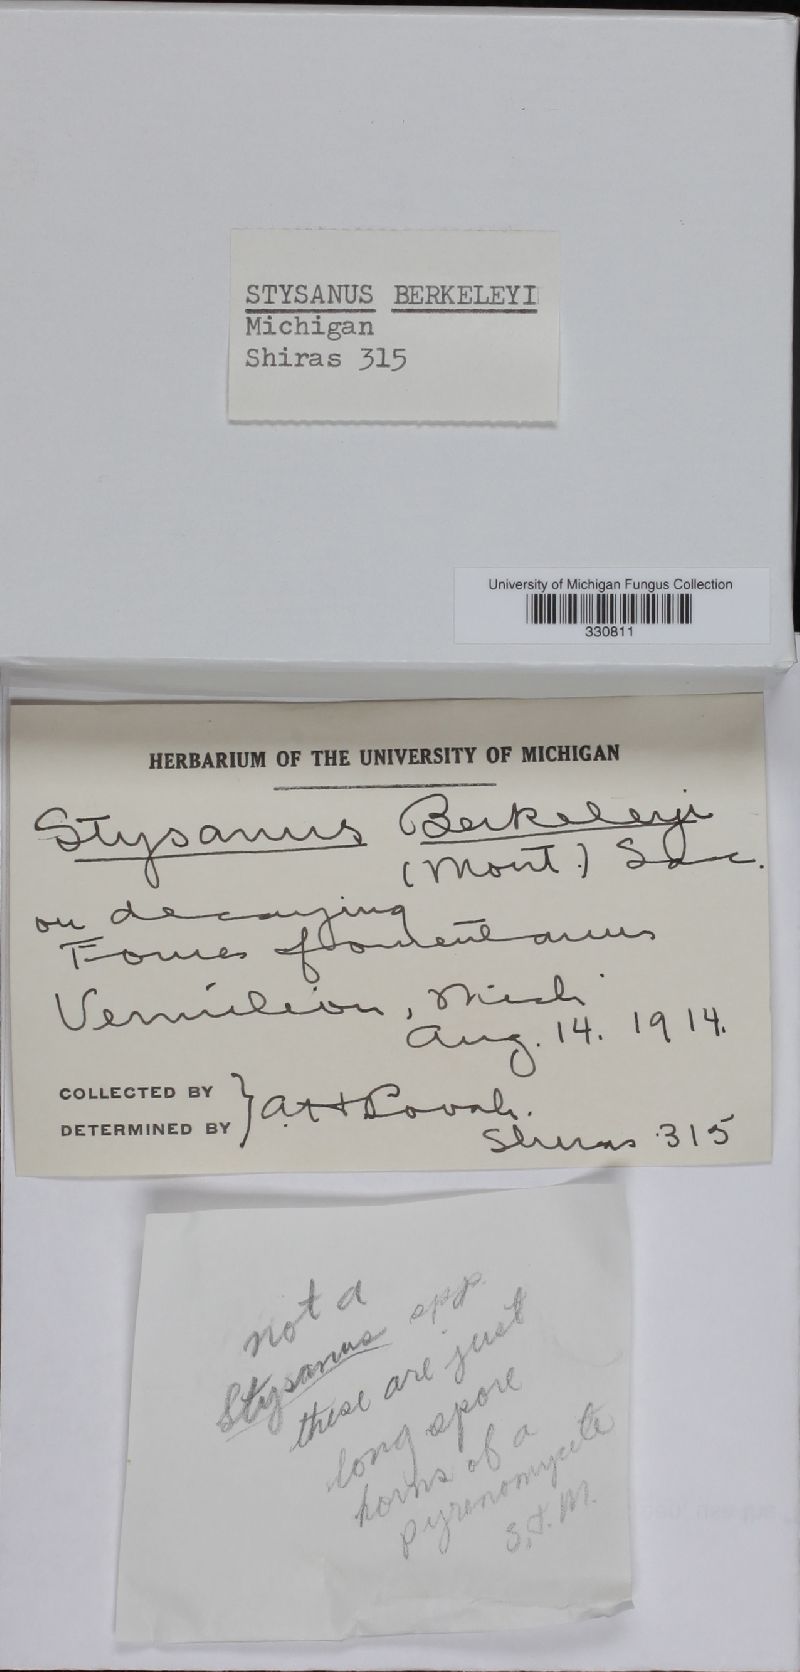 STYSANUS BERKELEYI
Michigan
Shiras 315
University of Michigan Fungus Collection
330811
HERBARIUM OF THE UNIVERSITY OF MICHIGAN
Stysanus Berkeleyi
(Mont.) Sacc.
on decaying
Fomes fomentarius
Vermilion, Mich
Aug. 14. 1914.
COLLECTED BY
DETERMINED BY } A H W Povah.
Shiras 315
not a
Stysanus spp.
these are just
long spore
horns of a
pyrenomycete
S.T.M.